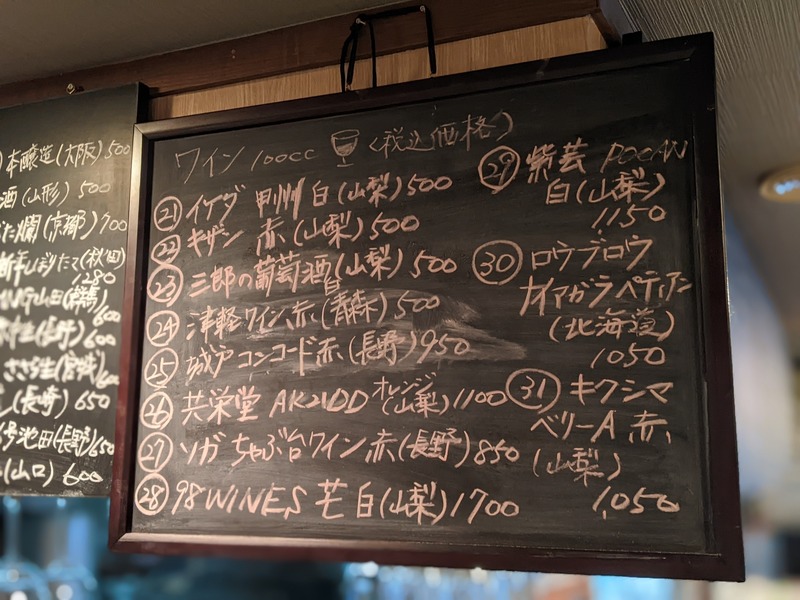 本醸造(大阪)500
酒(山形)500
た燗(京都)700
新米しぼりたて(秋田)
1280
山田(群馬)
600
生(長野)600
ささら生(宮城)600
し(長崎)650
号池田(長野)650
(山口)600
ワイン 100cc <税込価格>
㉑イケダ 甲州 白(山梨)500
㉒キザン 赤(山梨)500
㉓三郎の葡萄酒白(山梨)500
㉔津軽ワイン赤(青森)500
㉕城戸コンコード赤(長野)950
㉖共栄堂 AK21DD オレンジ(山梨)1100
㉗ソガ ちゃぶ台ワイン赤(長野)850
㉘98WINES 芒 白(山梨)1700
㉙紫芸 POCAN
白(山梨)
1,150
㉚ロウブロウ
ナイアガラペティアン
(北海道)
1050
㉛キクシマ
ベリーA 赤
(山梨)
1,050